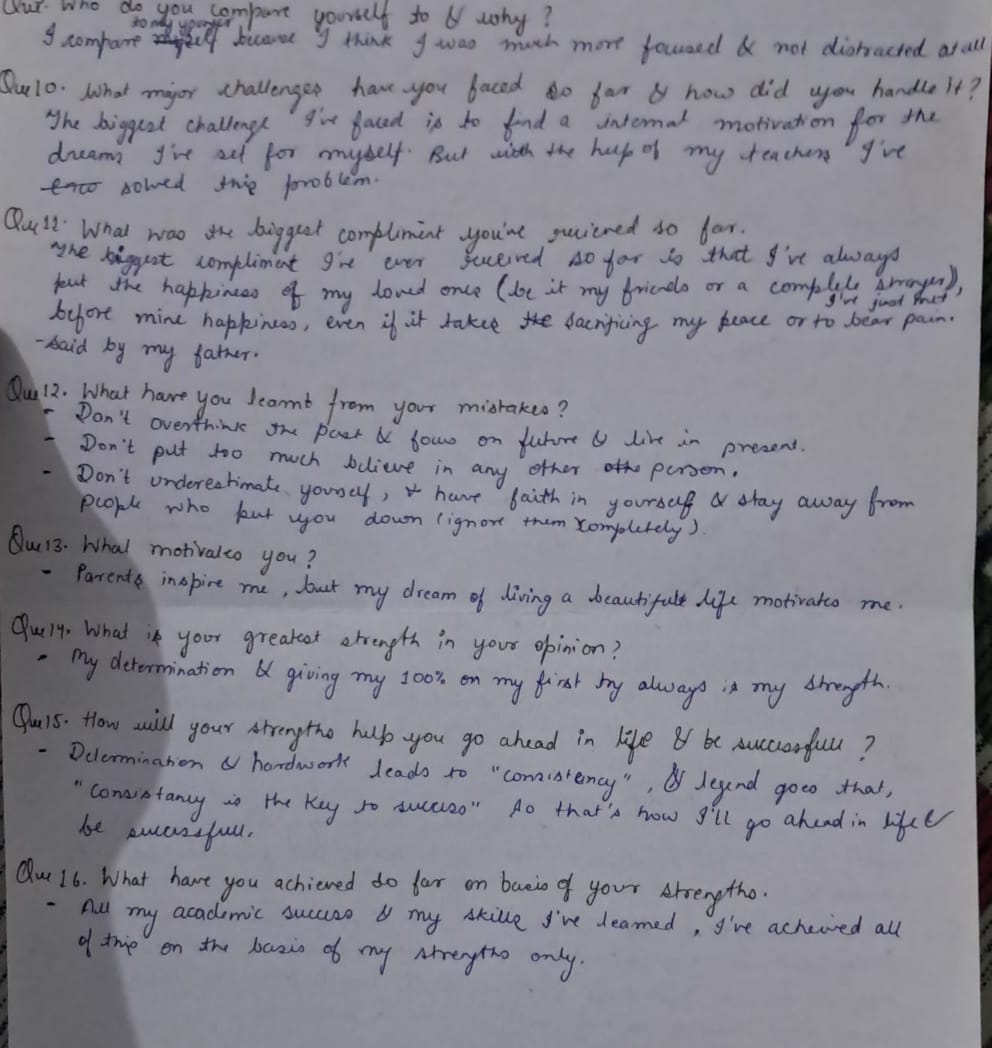 Que. Who do you compare yourself to & why?
to my younger
I compare myself because I think I was much more focused & not distracted at all
Que 10. What major challenges have you faced so far & how did you handle it?
The biggest challenge I've faced is to find a internal motivation for the
dreams I've set for myself. But with the help of my teachers I've
solved this problem.
Que 11. What was the biggest compliment you've recieved so far.
The biggest compliment I've ever received so far is that I've always
put the happiness of my loved ones (be it my friends or a complete stranger),
I've just met
before mine happiness, even if it takes the sacrificing my peace or to bear pain.
-said by my father.
Que 12. What have you learnt from your mistakes?
- Don't overthink the past & focus on future & live in present.
- Don't put too much believe in any other othe person.
- Don't underestimate yourself, & have faith in yourself & stay away from
people who put you down (ignore them completely).
Que 13. What motivates you?
- Parents inspire me, but my dream of living a beautiful life motivates me.
Que 14. What is your greatest strength in your opinion?
- My determination & giving my 100% on my first try always is my strength.
Que 15. How will your strengths help you go ahead in life & be successfull?
- Determination & hardwork leads to "consistency", & legend goes that,
"consistancy is the key to success" so that's how I'll go ahead in life &
be successfull.
Que 16. What have you achieved so far on basis of your strengths.
- All my academic success & my skills I've learned, I've acheived all
of this on the basis of my strengths only.